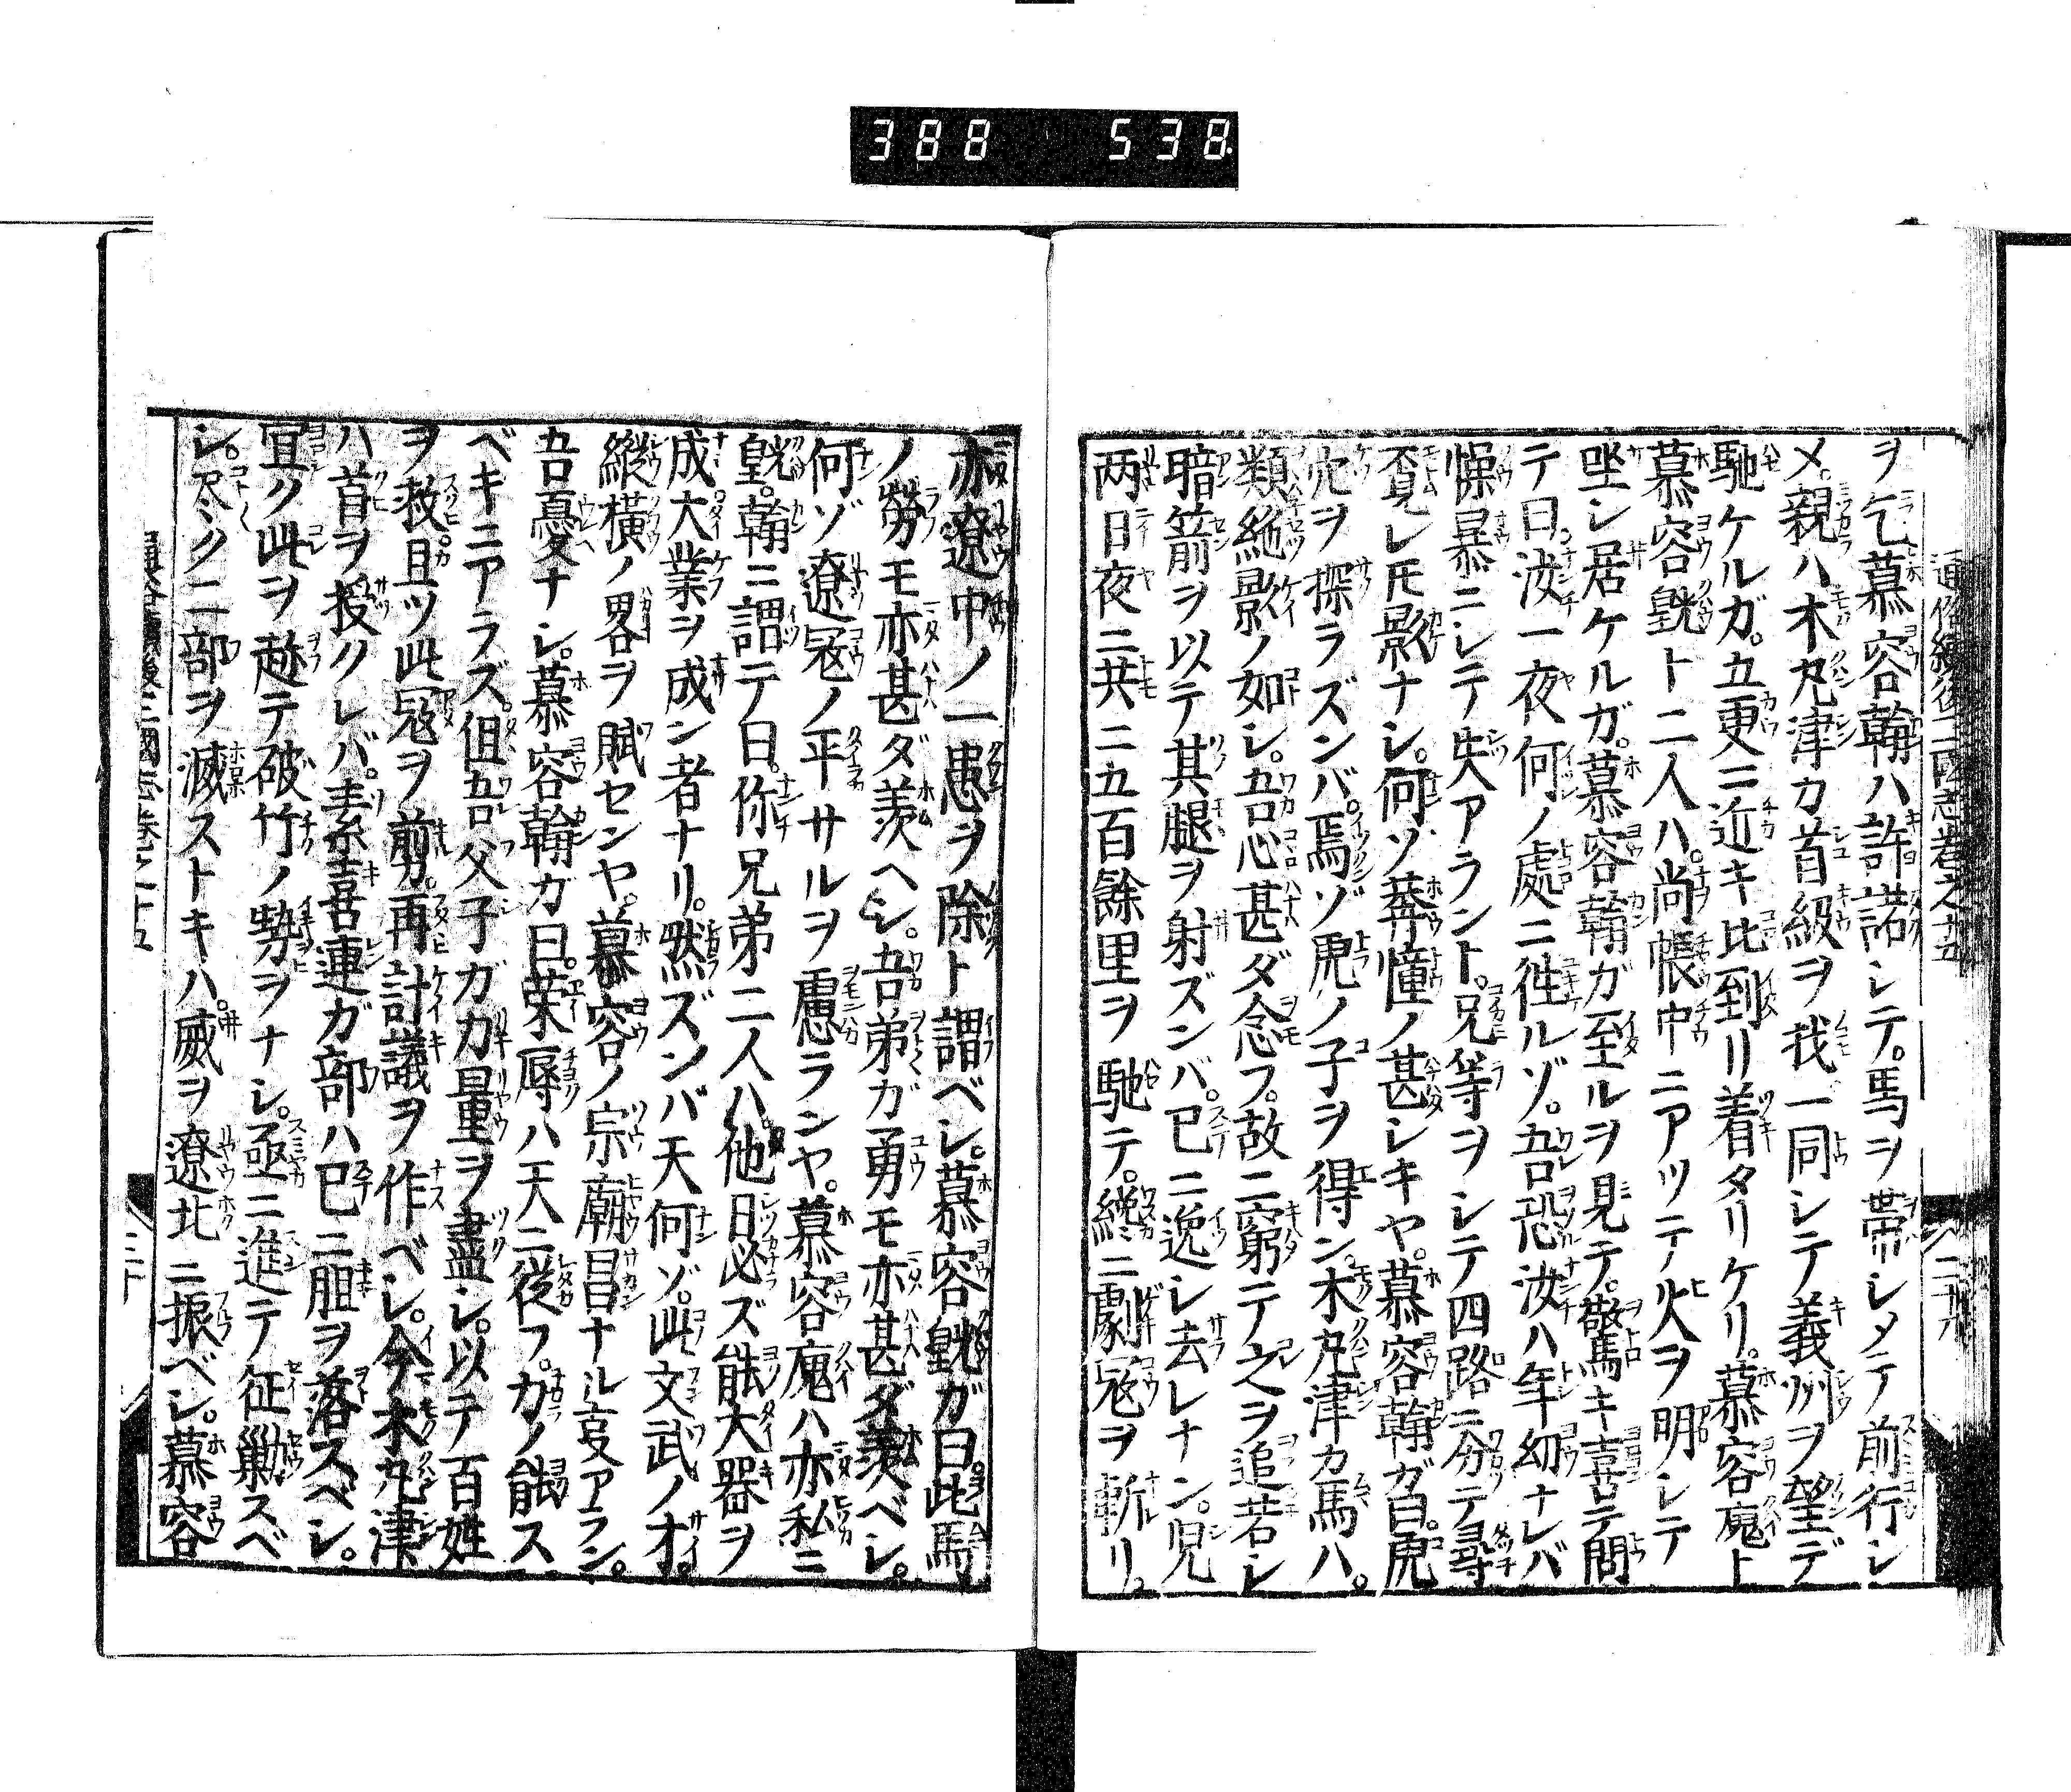 388 538
通俗續後三國志卷之十五
ヲ乞。慕容翰ハ許諾シテ。馬ヲ帶シメテ前行シ
メ。親ハ木丸津カ首級ヲ我一同シテ義州ヲ望デ
馳ケルガ。五更ニ近キ比到リ着タリケリ。慕容廆ト
慕容皝ト二人ハ。尚帳中ニアツテ火ヲ明シテ
坐シ居ケルガ。慕容翰ガ至ルヲ見テ。驚キ喜テ問
テ曰。汝一夜何ノ處ニ徃ルゾ。吾恐汝ハ年幼ナレバ
懆暴ニシテ失アラント。兄等ヲシテ四路ニ分テ尋
覓レ𪜈影ナシ。何ソ莾憧ノ甚シキヤ。慕容翰ガ曰。虎
穴ヲ探ラズンバ。焉ゾ虎ノ子ヲ得ン。木丸津カ馬ハ。
類絶影ノ如シ。吾心甚ダ念フ。故ニ窮テ之ヲ追若シ
暗箭ヲ以テ其腿ヲ射ズンバ。已ニ逸シ去レナン。児
两日夜ニ共ニ五百餘里ヲ馳テ。纔ニ劇冦ヲ斬リ。
亦遼中ノ一愚ヲ除ト謂ベシ。慕容皝ガ曰。此馬
ノ勞モ亦甚ダ羨ヘシ。吾弟ガ勇モ亦甚ダ羨ベシ。
何ゾ遼冦ノ平サルヲ慮ランヤ。慕容廆ハ亦私ニ
皝。翰ニ謂テ曰。你兄弟二人ハ。他日必ズ能大器ヲ
成大業ヲ成ン者ナリ。然ズンバ天何ゾ。此文武ノ才。
縱橫ノ畧ヲ賦センヤ。慕容ノ宗廟昌ナル㕝アラン。
吾憂ナシ。慕容翰ガ曰。栄辱ハ天ニ從フ。力ノ能ス
ベキニアラズ。但吾父子ガ力量ヲ盡シ。以テ百姓
ヲ救且ツ此冦ヲ剪。再計議ヲ作ベシ。今木丸津
ハ首ヲ授クレバ。素喜連ガ部ハ已ニ胆ヲ落スベシ。
宜ク此ヲ趂テ破竹ノ勢ヲナシ。亟ニ進テ征巢スベ
シ。尽ミク二部ヲ滅ストキハ。威ヲ遼北ニ振ベシ。慕容
三十